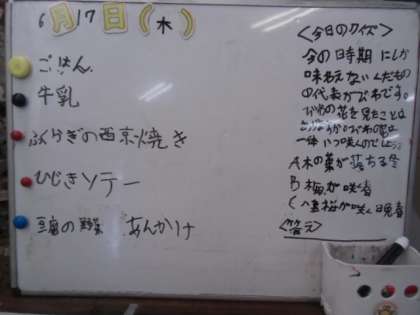 6月17日(木)
ごはん
牛乳
ふくらぎの西京焼き
ひじきソテー
豆腐の野菜あんかけ
<今日のクイズ>
今の時期にしか
味わえないくだもの
の代表がびわです。
びわの花を見たことは
一体いつ咲くのでしょう
A木の葉が落ちる冬
B梅が咲く春
C八重桜が咲く晩春
<答え>